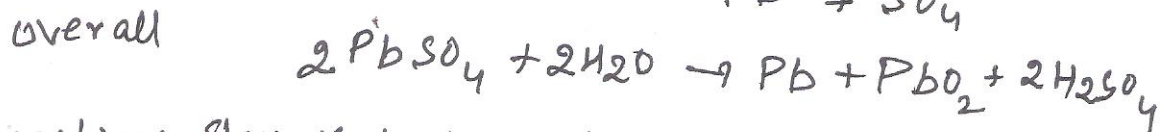 + SO4
overall 2PbSO4 + 2H2O → Pb + PbO2 + 2H2SO4